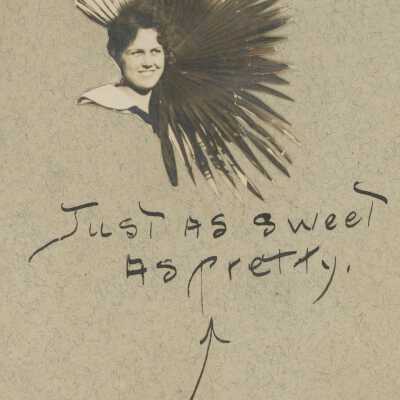 Just as sweet
as pretty.